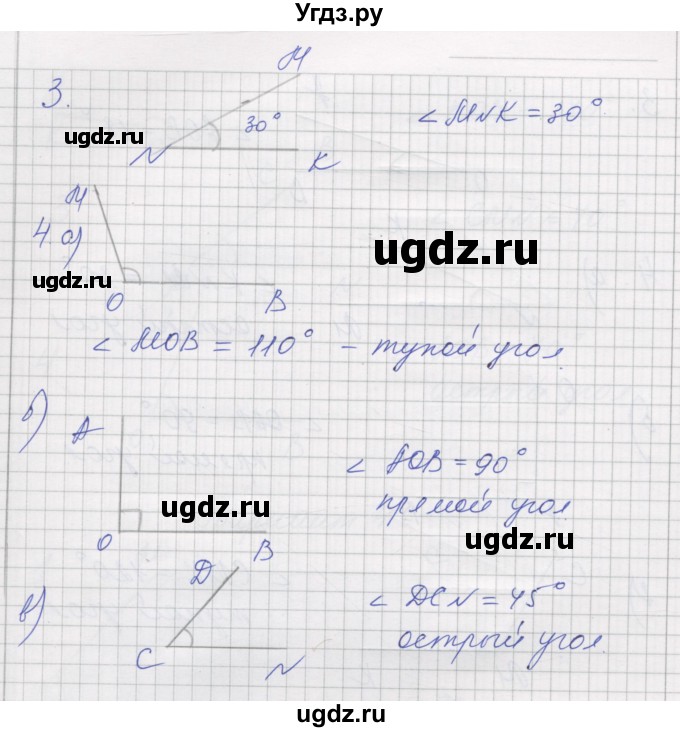 Угдз.ру
M
3.
30°
∠MNK = 30°
ugdz.ru
N
K
M
4 а)
ugdz.ru
ugdz.ru
O
B
∠MOB = 110° – тупой угол.
б)
A
∠AOB = 90°
прямой угол
ugdz.ru
ugdz.ru
O
B
D
в)
∠DCN = 45°
острый угол.
C
N
ugdz.ru